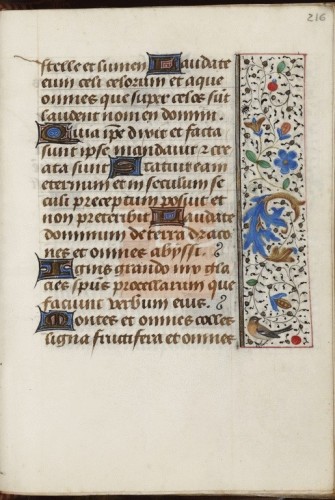 216
stelle et lumen Laudate
eum celi celorum et aque
omnes que super celos sūt
laudent nomen domini.
Quia ipe dixit et facta
sunt ipse mandauit ⁊ cre
ata sunt Statuit ea in
eternum et in seculum se
culi preceptum posuit et
non preteribit Laudate
dominum de terra draco
nes et omnes abyssi.
Ignis grando nix gla
cies spūs procellarum que
faciunt verbum eius.
Montes et omnes colles
ligna fructifera et omnes